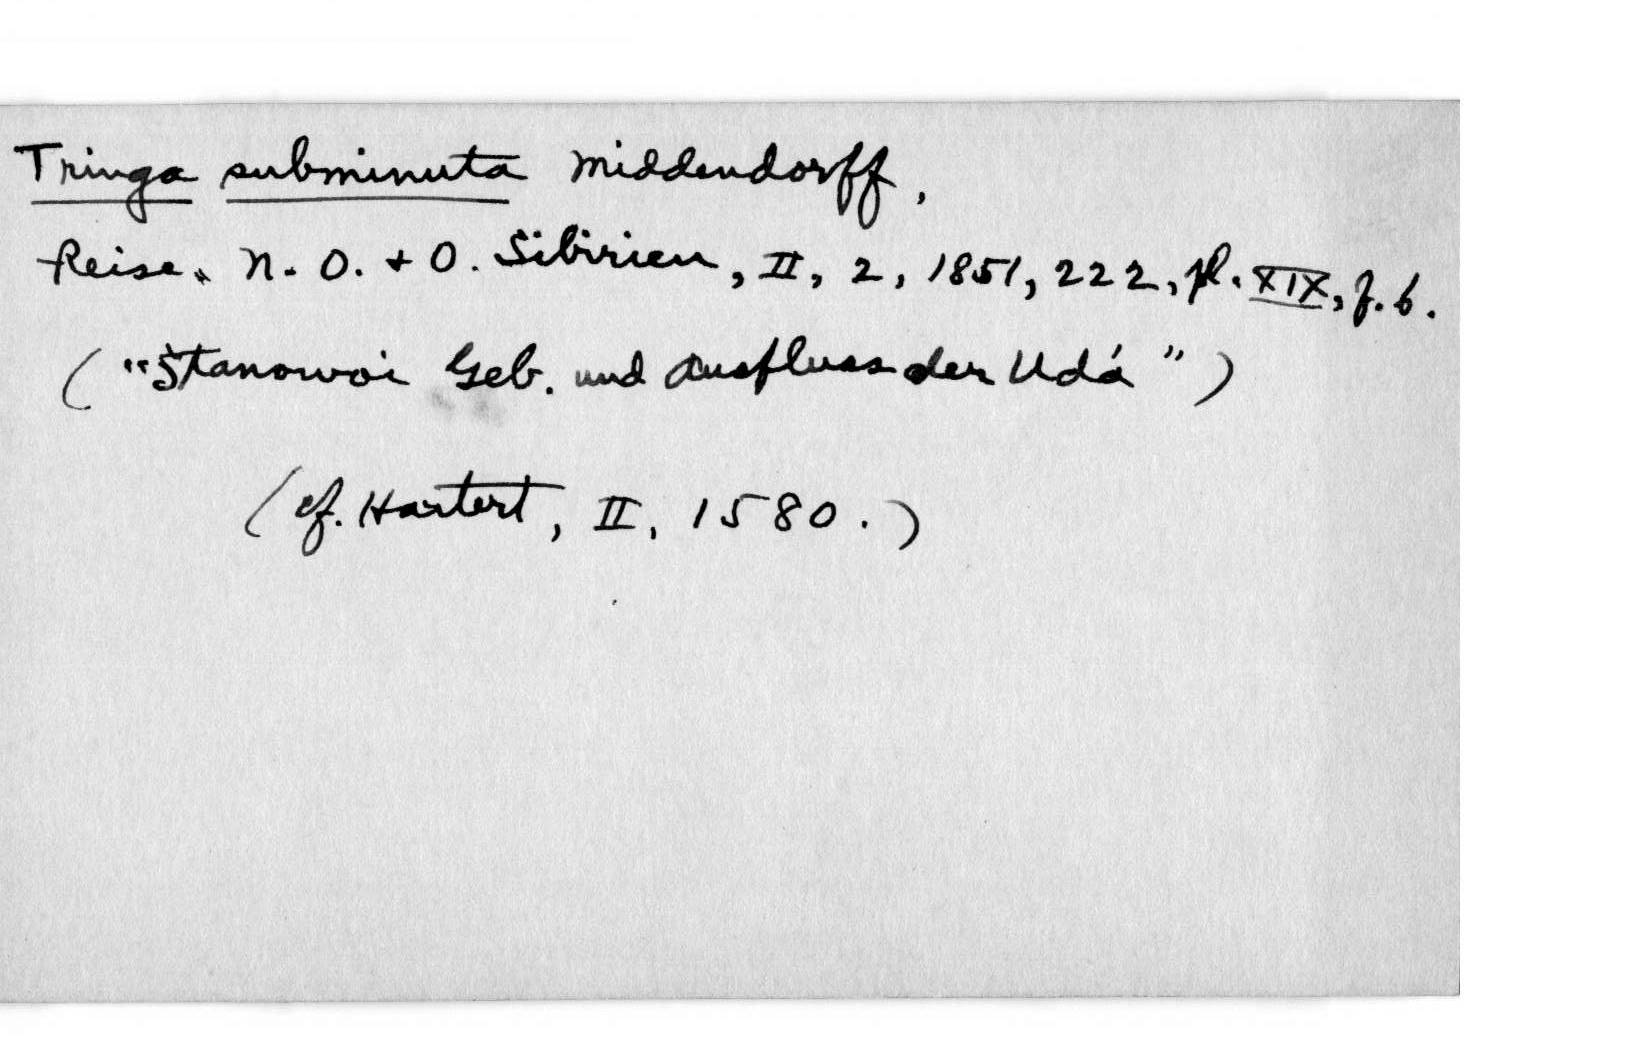 Tringa subminuta Middendorff,
Reise. N. O. + O. Sibirien, II, 2, 1851, 222, pl. XIX, f. 6.
("Stanowoi Geb. und Ausfluss der Udá")
(cf. Hartert, II, 1580.)